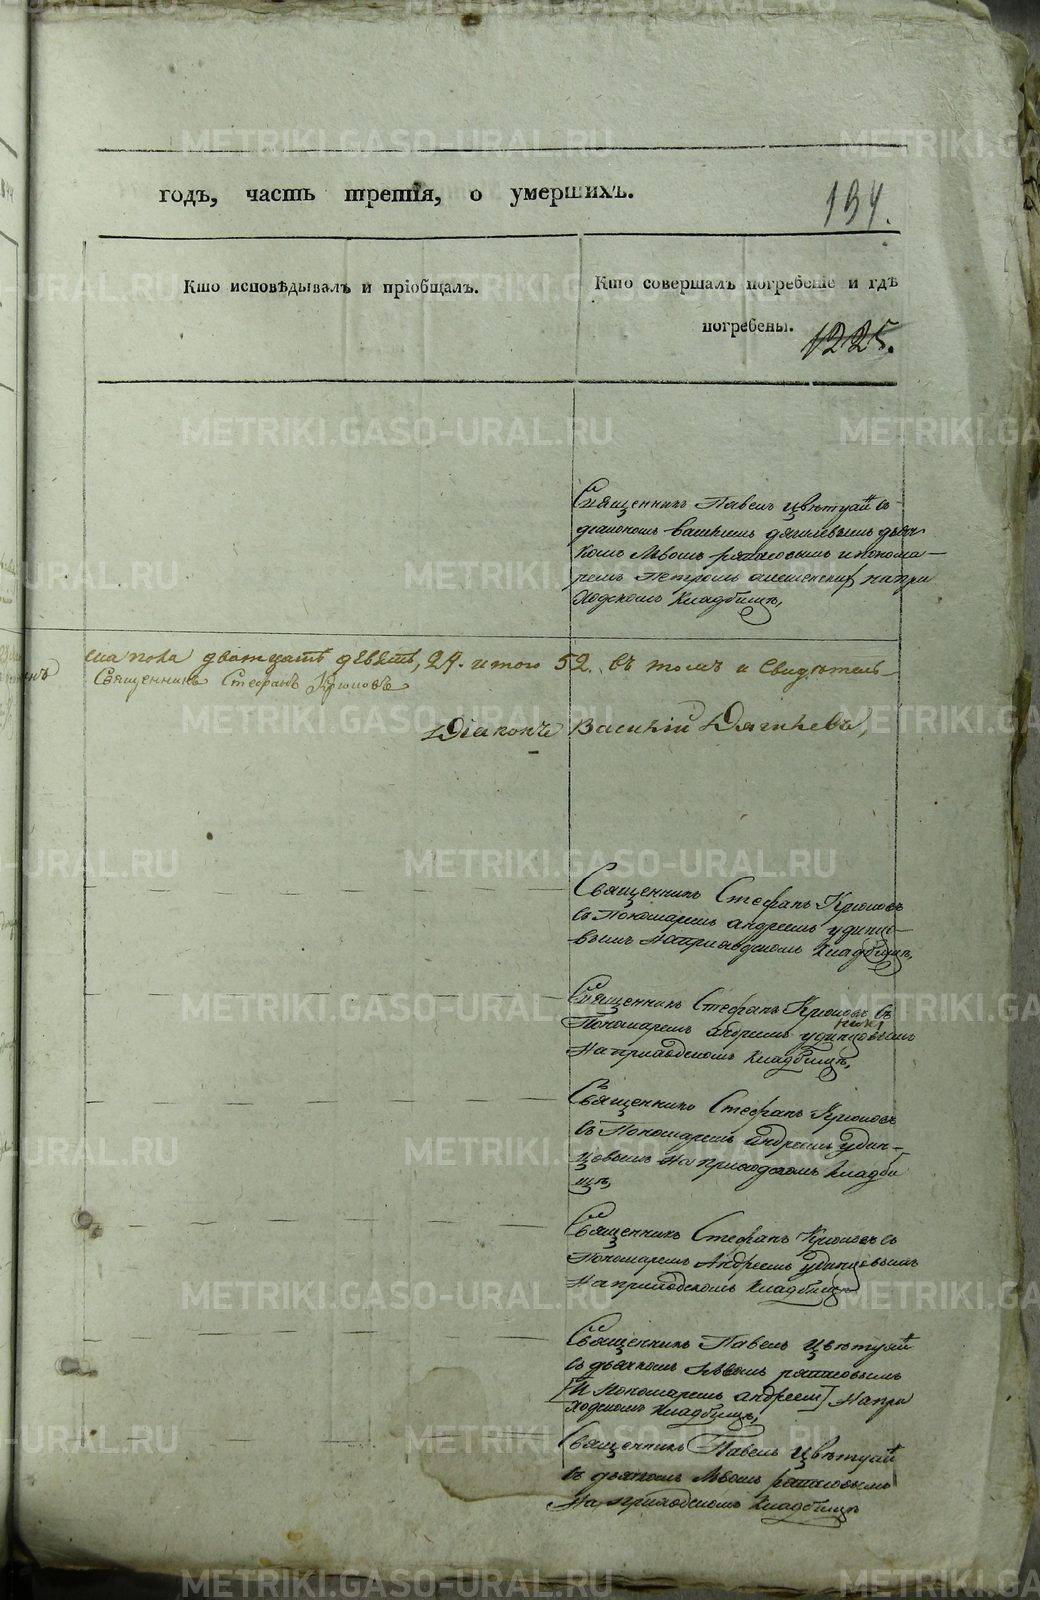 годъ, часть третія, о умершихъ.
134.
Кто исповѣдывалъ и пріобщалъ.
Кто совершалъ погребеніе и гдѣ
погребены.
1225.
Священникъ Павелъ Цвѣтуай съ
діакономъ
комъ Львомъ и понома-
ремъ Петромъ на при
ходскомъ кладбищѣ,
пола двотцать девять, 29. итого 52. въ томъ и Свидѣтель-
Священникъ Стефанъ Крюковъ
Діаконъ Василій Дягилевъ,
Священникъ Стефанъ Крюковъ
съ Пономаремъ андреемъ удинцо-
вымъ на приходскомъ кладбищѣ,
Священникъ Стефанъ Крюковъ съ
Пономаремъ андреемъ удинцовымъ
На приходскомъ кладбищѣ,
Священникъ Стефанъ Крюковъ
съ Пономаремъ андреемъ удин-
цовымъ на приходскомъ кладби
щѣ,
Священникъ Стефанъ Крюковъ съ
Пономаремъ Андреемъ удинцовымъ
На приходскомъ кладбищѣ
Священникъ Павелъ Цвѣтуай
съ дьячкомъ Львомъ
[И Пономаремъ андреем] На при
ходскомъ кладбищѣ,
Священникъ Павелъ Цвѣтуай
съ дьячкомъ Львомъ
На приходскомъ кладбищѣ
METRIKI.GASO-URAL.RU